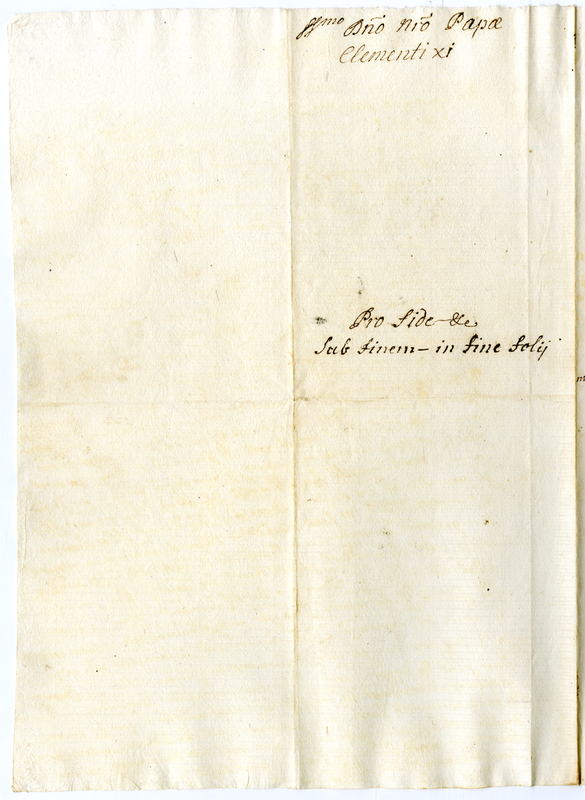 SSmo Dño Nrõ Papæ
Clementi xi
Pro fide &c
Sub finem – in fine folij